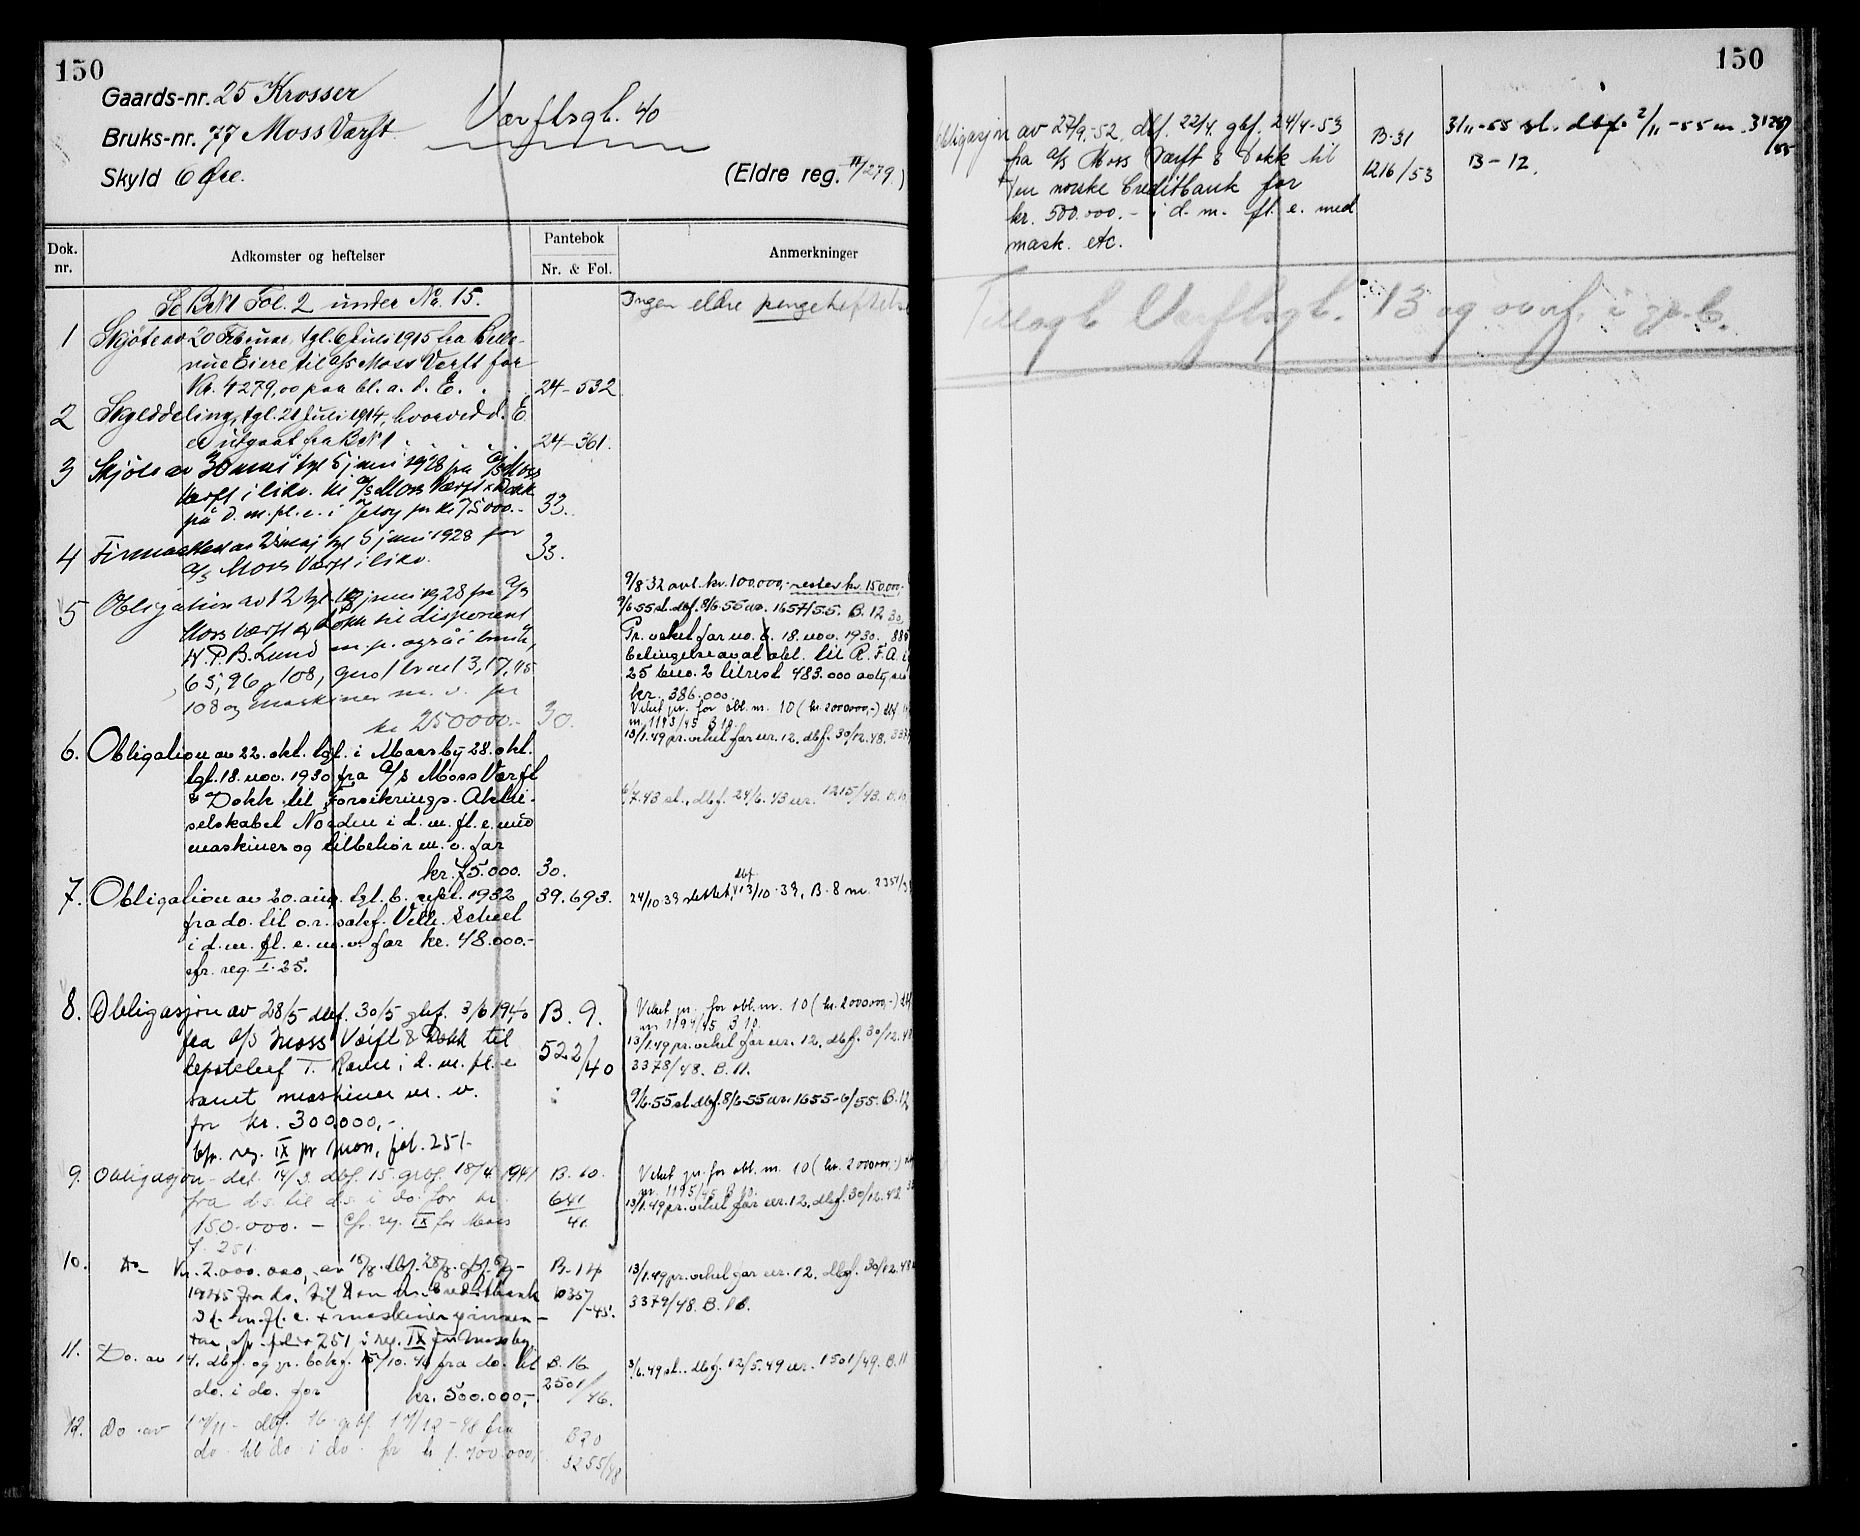 150
Gaards-nr. 25 Krosser
Bruks-nr. 77 Moss Værft
Værftsgt. 40
Skyld 6 Øre.
(Eldre reg. II/279.)
Dok. nr.
Adkomster og heftelser
Pantebok
Nr. & Fol.
Anmerkninger
Se BrN 1 Fol. 2 under No. 15.
Ingen eldre pengeheftelser
1 Skjøte av 20 Februar, tgl. 6 Juli 1915 fra Belle-
vue Eiere til A/S Moss Værft for
Kr. 4279,00 paa bl. a. d. E. 24-532
2 Skylddeling, tgl. 21 Juli 1914, hvorved d. E.
er utgaat fra BrN 1 24-361.
3 Skjöte av 30 mai tgl 5 juni 1928 fra A/S Moss
Værft i likv. til A/S Moss Værft & Dokk
på d. m. fl. e. i Jeløy for kr 75000.- 33.
4 Firmaattest av 23 mai tgl 5 juni 1928 for
A/S Moss Værft i likv. 33.
5 Obligation av 12 tgl juni 1928 fra A/S
Moss Værft & Dokk til disponent
N. P. B. Lund m. p. også i bruk
65, 96, 108, gnr 1 brnr 13, 17, 45
108 og maskiner m. v. for
kr 250000.- 30.
9/8 32 avl. kr. 100.000,- rester kr. 150.000.-
9/6-55 sl. dbf. 8/6-55 nr. 1657/55. B. 12
Pr. vikel for no. 6. 18. nov. 1930.
betingelse av at obl. til R. F. A.
25 bno. 2 litrest 483.000 
kr. 386.000.
Veket pr. for obl. nr. 10 (kr. 2000000,-) dbf
nr. 1193/45 B 10.
13/1.49 pr. vikel for nr. 12. dbf. 30/12.48.
6. Obligation av 22. okt. tgl. i Moss by 28. okt.
tgl. 18. nov. 1930 fra A/S Moss Værft
& Dokk til Forsikrings-Aktie-
selskabet Norden i d. m. fl. e. med
maskiner og tilbehør m. v. for
kr. 75.000. 30.
6/7.43 sl., dbf. 24/6.43 nr. 1215/43. B. 10
7. Obligation av 20. aug. tgl. 6. sept. 1932 39.693.
fra do. til o.r. sakf. Vilh. Scheel
i d. m. fl. e. m. v. for kr. 48.000.-
cfr. reg. I. 25.
24/10 39 slettet, dbf. 13/10-39, B. 8 nr. 2351/39
8. Obligasjon av 28/5 dbf. 30/5 gbf. 3/6 1940 B. 9.
fra A/S Moss Værft & Dokk til 522/40
i d. m. fl. e
samt maskiner m. v.
for kr. 300.000,-.
Cfr. reg. IX for Moss, fol. 251.
Veket pr. for obl. nr. 10 (kr. 2000000,-) dbf
nr 1194/45 B 10.
13/1.49 pr. vikel for nr. 12. dbf. 30/12.48
3378/48. B. 11.
9/6-55 sl. dbf. 8/6-55 nr. 1655-6/55. B. 12
9. Obligasjon dat. 14/3. dbf. 15. grbf. 18/4 1941 B. 10.
fra ds. til ds. i do. for kr. 641/41.
150.000.- Cfr. reg. IX for Moss
f. 251.
Veket pr. for obl. nr. 10 (kr. 2000000,-) dbf
nr. 1195/45 B 10.
13/1.49 pr. vikel for nr. 12. dbf. 30/12.48
10. Do Kr. 2.000.000,- av 18/8. dbf. 28/8. gbf. B. 14
1945 fra do. til Den n. Creditbank 1035/-45.
i d. m. fl. e. + maskiner inven-
tar, cfr. fol 251 i reg. IX for Moss by.
13/1.49 pr. vikel for nr. 12. dbf. 30/12.48
3379/48. B. 11.
11. Do. av 14. dbf. og gr. bokf. 15/10.46 fra do. til B. 16
do. i do. for kr. 500.000,- 2501/46.
3/6.49 sl.. dbf. 12/5.49 nr. 1501/49. B. 11
12. Do. av 17/11- dbf. 16 gbf. 17/12-48 fra B 20
do til do i do for kr 1.700.000,- 3255/48
150
Obligasjon av 27/9.-52. dbf. 22/4. gbf. 24/4-53 B-31
fra A/S Moss Værft & Dokk til 1216/53
Den norske Creditbank for
kr. 500.000.- i d. m. fl. e. med
mask. etc.
3/11-55 sl. dbf. 2/11-55 nr. 3128/55
B-12.
Tillagt Værftsgt. 13 og overf. i gr. b.